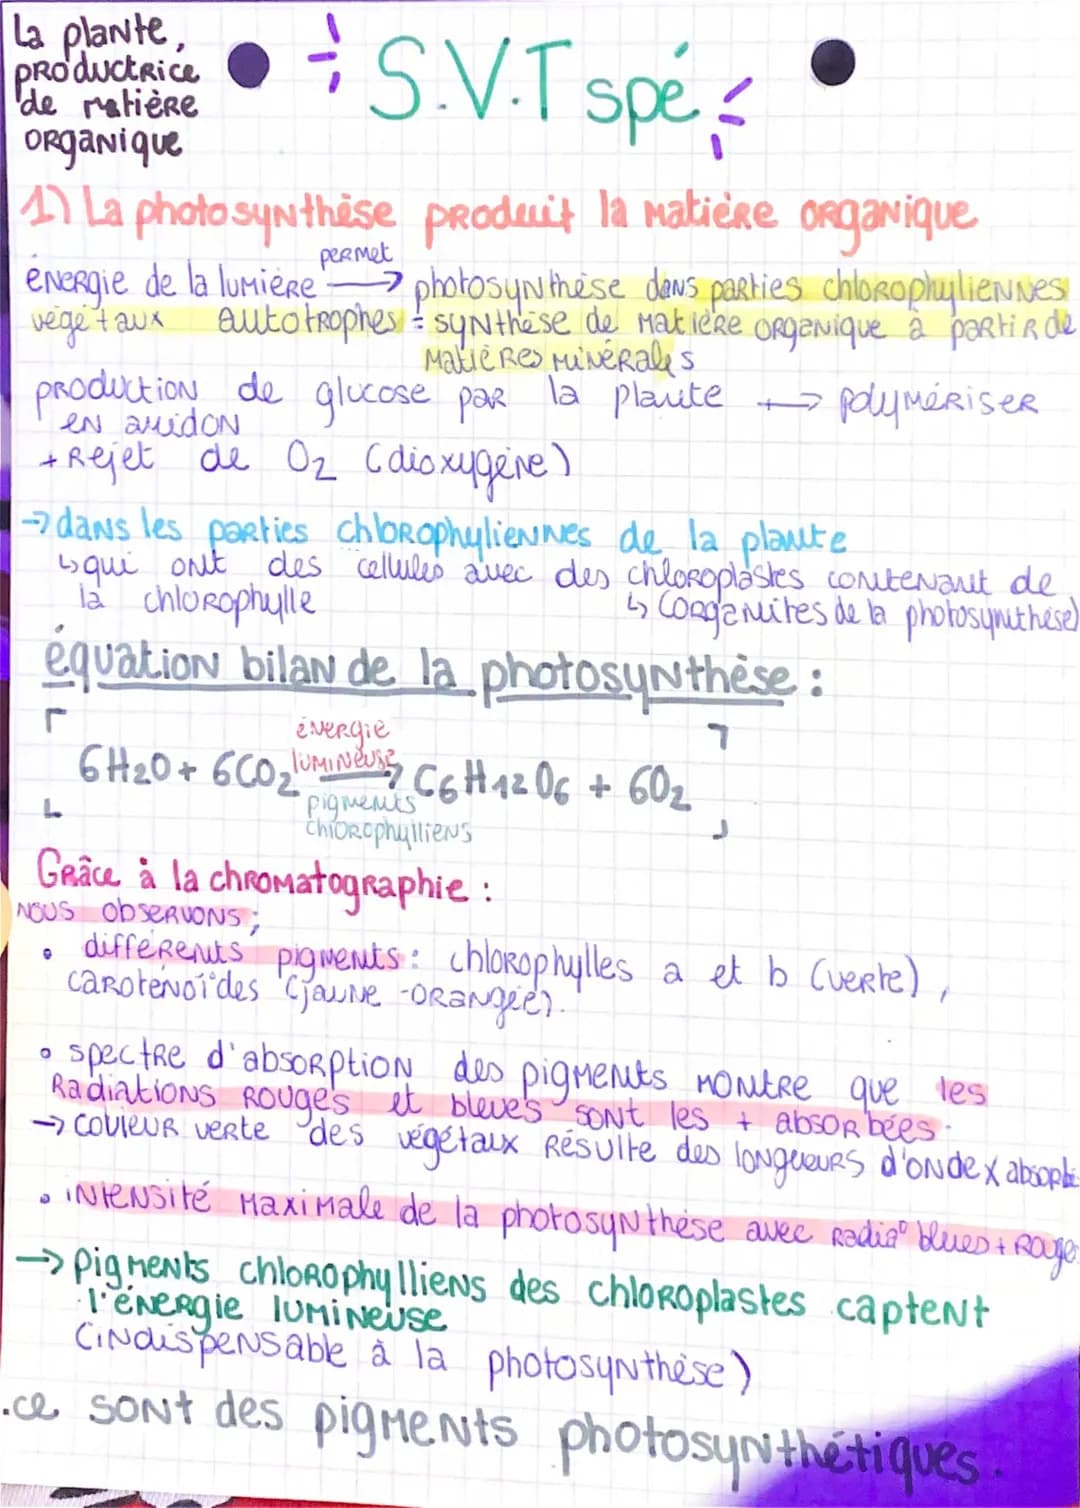 La plante,
productrice
de matière
organique
S.V.T spé
1) La photosynthèse produit la matière organique
énergie de la lumière permet → photosynthèse dans parties chlorophyliennes
végétaux autotrophes = synthèse de matière organique à partir de
matières minérales
production de glucose par la plante → polymériser
en amidon
+ rejet de O2 (dioxygène)
→ dans les parties chlorophyliennes de la plante
↳ qui ont des cellules avec des chloroplastes contenant de
la chlorophylle
↳ (organites de la photosynthèse)
équation bilan de la photosynthèse :
énergie
lumineuse
6H2O + 6CO2 → C6H12O6 + 6O2
pigments
chlorophylliens
Grâce à la chromatographie :
nous observons ;
• différents pigments : chlorophylles a et b (verte),
caroténoïdes (jaune-orangée).
• spectre d'absorption des pigments montre que les
radiations rouges et bleues sont les + absorbées.
→ couleur verte des végétaux résulte des longueurs d'onde x absorbé
• intensité maximale de la photosynthèse avec radia° blues + rouges
→ pigments chlorophylliens des chloroplastes captent
l'énergie lumineuse
(indispensable à la photosynthèse)
.ce sont des pigments photosynthétiques.